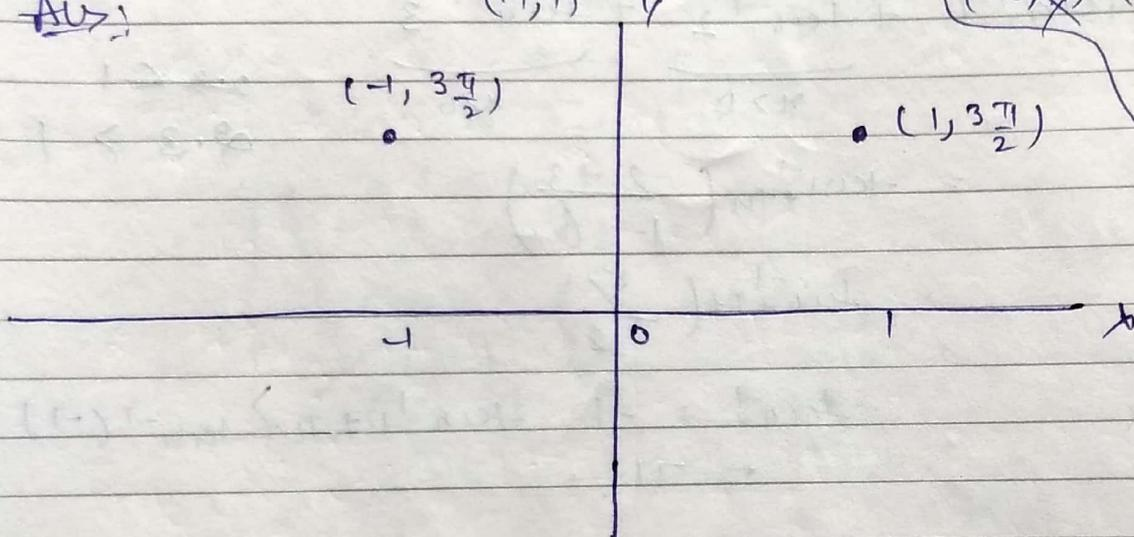 Ans:
(-1, 3π/2)
(1, 3π/2)
-1 0 1 x